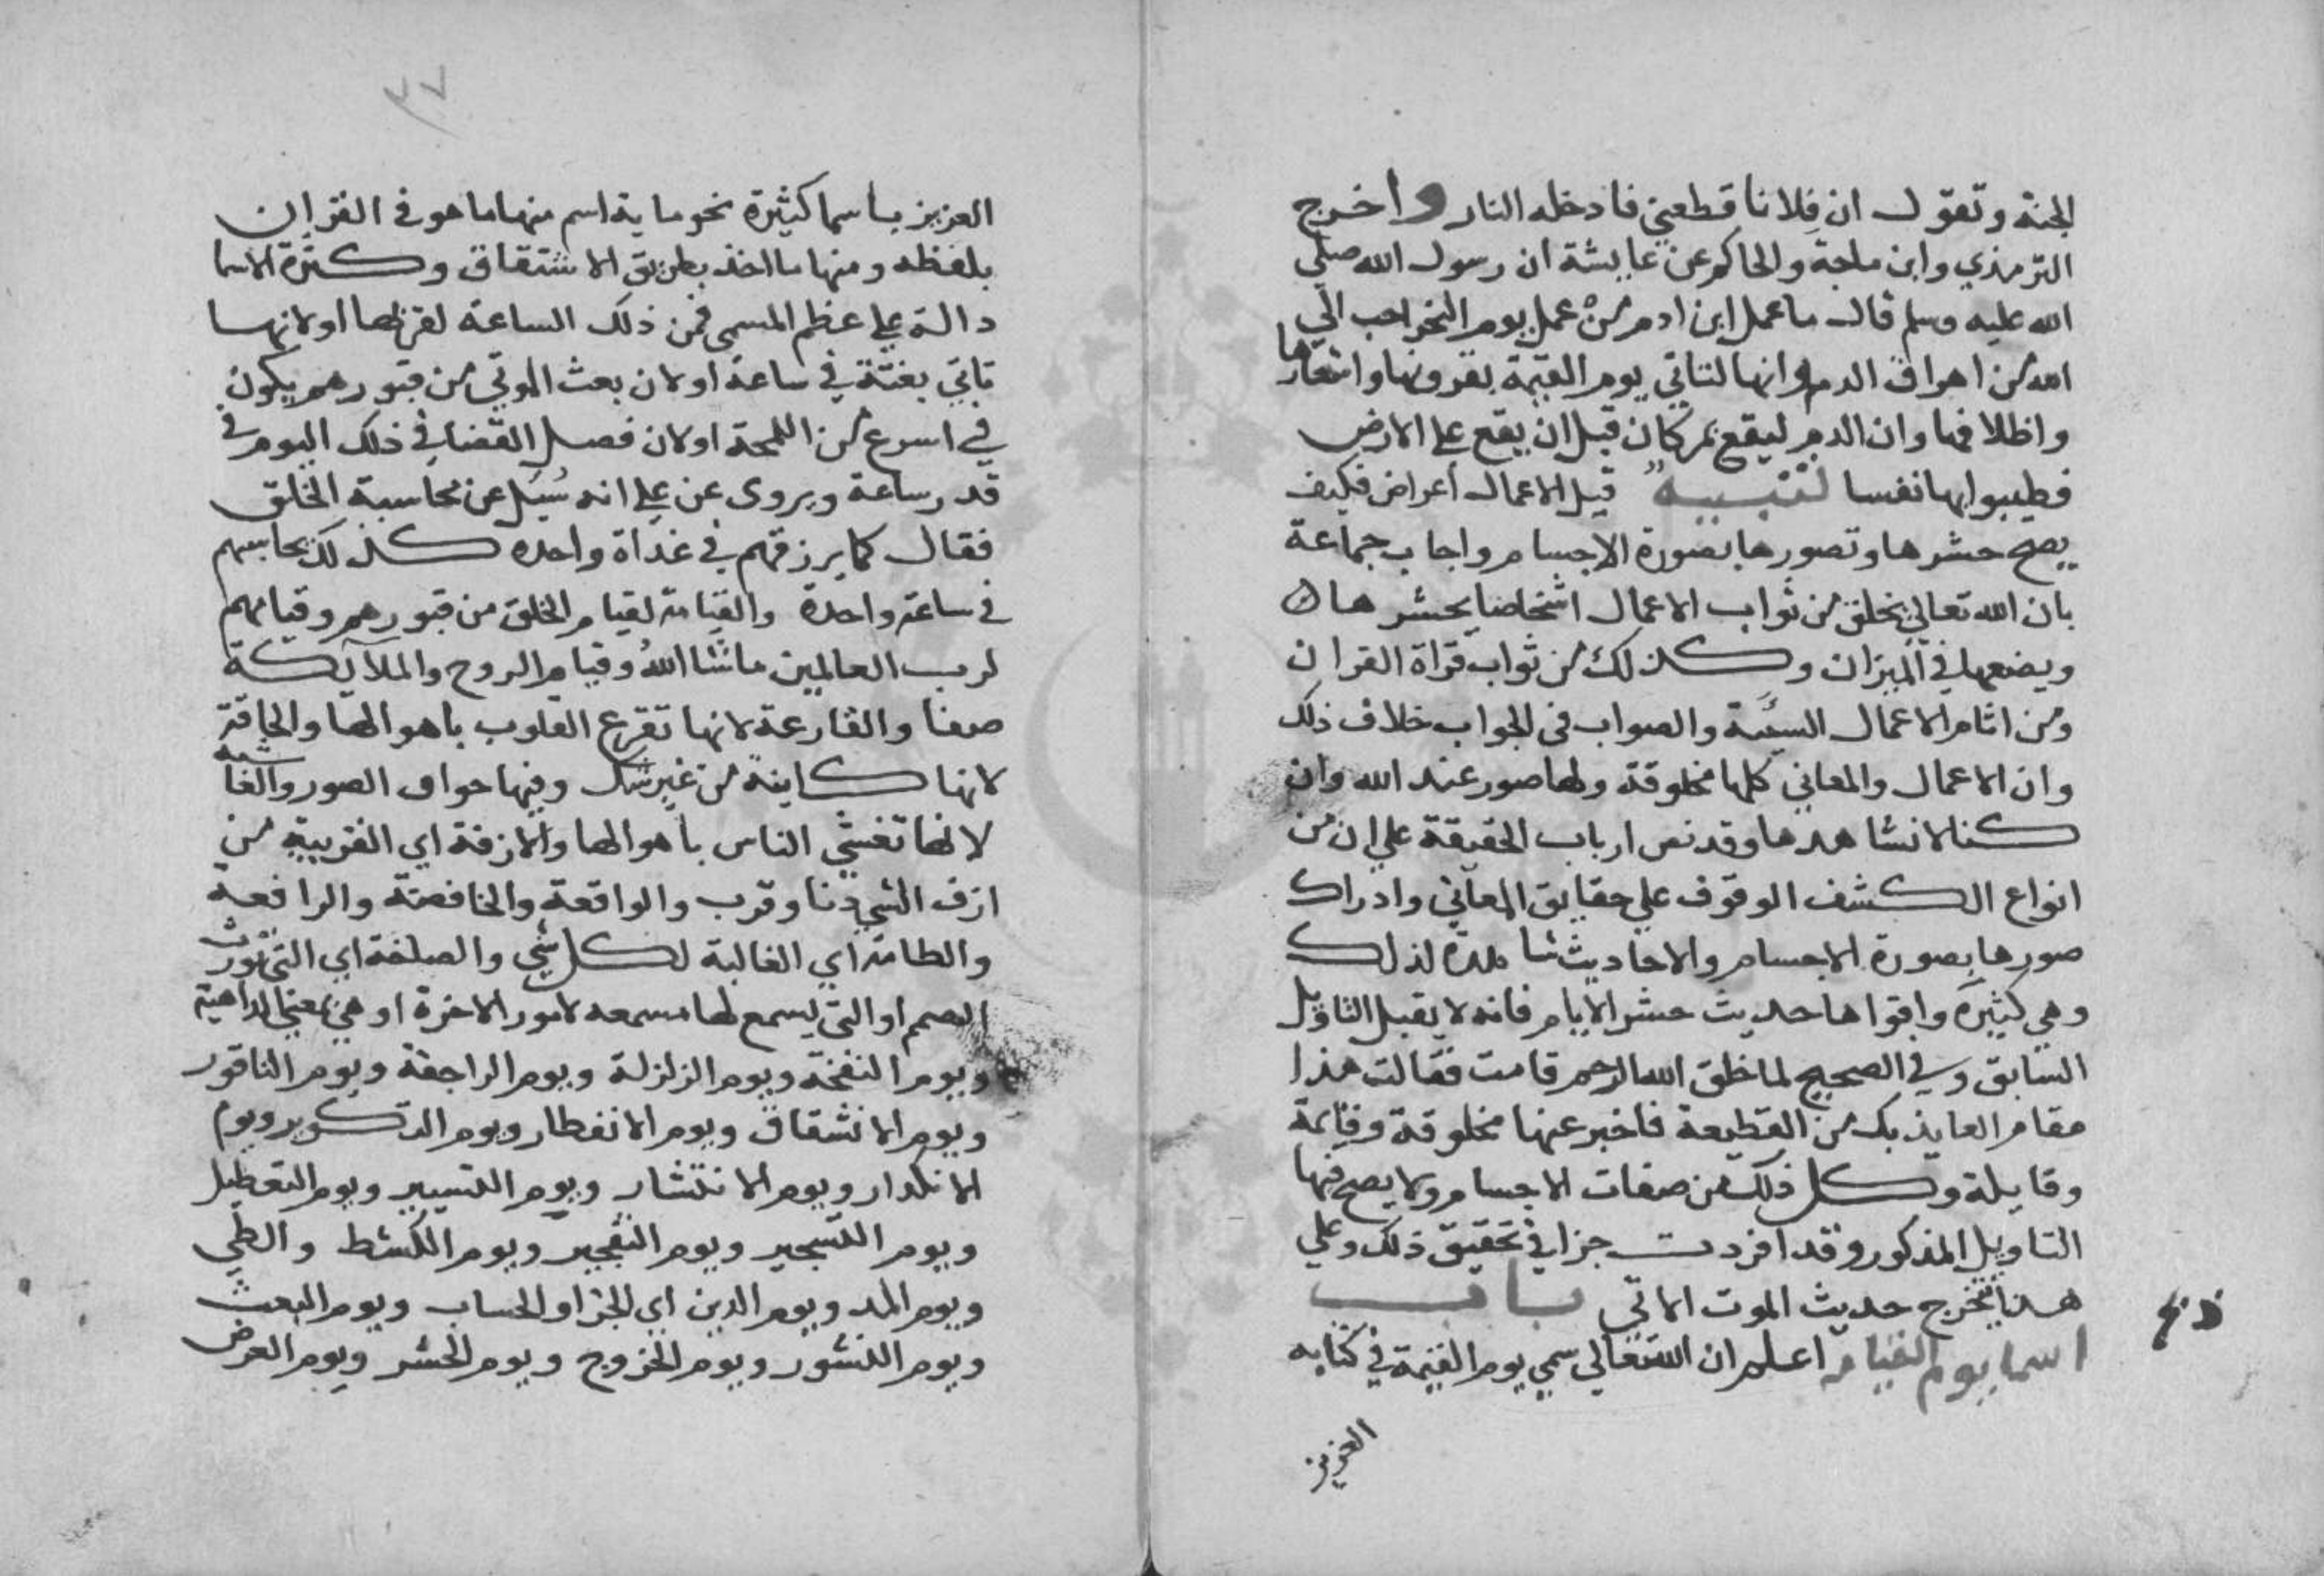 الجنة وتقول ان فلانا قطعني فادخله النار واخرج
الترمذي وابن ماجة والحاكم عن عايشة ان رسول الله صلي
الله عليه وسلم قال ما عمل ابن ادم من عمل يوم النحر احب الي
الله من اهراق الدم وانها لتاتي يوم القيمة بقرونها واشعارها
واظلافها وان الدم ليقع بمركان قبل ان يقع علي الارض
فطيبوا بها نفسا تنبيه قيل الاعمال أعراض فكيف
يصح حشرها وتصورها بصورة الاجسام واجاب جماعة
بان الله تعالي يخلق من ثواب الاعمال اشخاصا يحشرها
ويضعها في الميزان وكذلك من ثواب قراة القران
ومن اثام الاعمال السيئة والصواب في الجواب خلاف ذلك
وان الاعمال والمعاني كلها مخلوقة ولها صور عند الله وان
كنا لا نشاهدها وقد نص ارباب الحقيقة علي ان من
انواع الكشف الوقوف علي حقايق المعاني وادراك
صورها بصورة الاجسام والاحاديث شاهدة لذلك
وهي كثيرة واقواها حديث حشر الايام فانه لا يقبل التاويل
السابق وفي الصحيح لما خلق الله الرحم قامت فقالت هذا
مقام العايذ بك من القطيعة فاخبر عنها مخلوقة وقايمة
وقايلة وكل ذلك من صفات الاجسام ولا يصح فيها
التاويل المذكور وقد افردت جزا في تحقيق ذلك وعلي
هذا يتخرج حديث الموت الاتي باب
اسما يوم القيامه اعلم ان الله تعالي سمي يوم القيمة في كتابه
العزيز
٣٧
العزيز باسما كثيرة نحو ماية اسم منها ما هو في القران
بلفظه ومنها ما اخذ بطريق الاشتقاق وكثرة الاسما
دالة علي عظم المسمي فمن ذلك الساعة لقربها او لانها
تاتي بغتة في ساعة او لان بعث الموتي من قبورهم يكون
في اسرع من اللمحة او لان فصل القضا في ذلك اليوم في
قدر ساعة ويروى عن علي انه سُيل عن محاسبة الخلق
فقال كما يرزقهم في غداة واحده كذلك يحاسبهم
في ساعة واحدة والقيامة لقيام الخلق من قبورهم وقيامهم
لرب العالمين ما شا اللهُ وقيام الروح والملايكة
صفا والقارعة لانها تقرع القلوب باهوالها والحاقة
لانها كاينة من غير شك وفيها حواق الصور والغاشية
لانها تغشي الناس باهوالها والازفة اي القريبة من
ازف الشي دنا وقرب والواقعة والخافضة والرافعة
والطامة اي الغالبة لكل شي والصاخة اي التي تورث
الصمم او التي يسمع لها مسمعه لامور الاخرة او هي بمعني الداهية
ويوم النفخة ويوم الزلزلة ويوم الراجفة ويوم الناقور
ويوم الانشقاق ويوم الانفطار ويوم التكوير ويوم
الانكدار ويوم الانتثار ويوم التسيير ويوم التعطيل
ويوم التسجير ويوم التفجير ويوم الكشط والطي
ويوم المد ويوم الدين اي الجزا والحساب ويوم البعث
ويوم النشور ويوم الخروج ويوم الحشر ويوم العرض